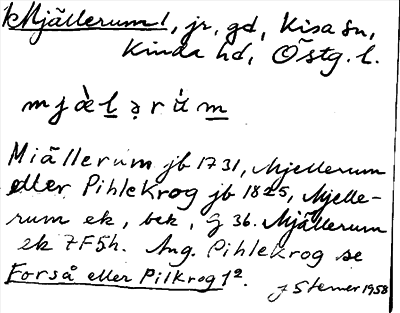 kMjällerum 1, jr, gd, Kisa sn,
Kinda hd, Östg. l.
mjæ̀l̠ə̣rù̇m̠
Miällerum jb 1731, Mjellerum
eller Pihlekrog jb 1825, Mjelle-
rum ek, bek, G 36. Mjällerum
ek 7F5h. Ang. Pihlekrog se
Forså eller Pilkrog 1².
J Sterner 1958